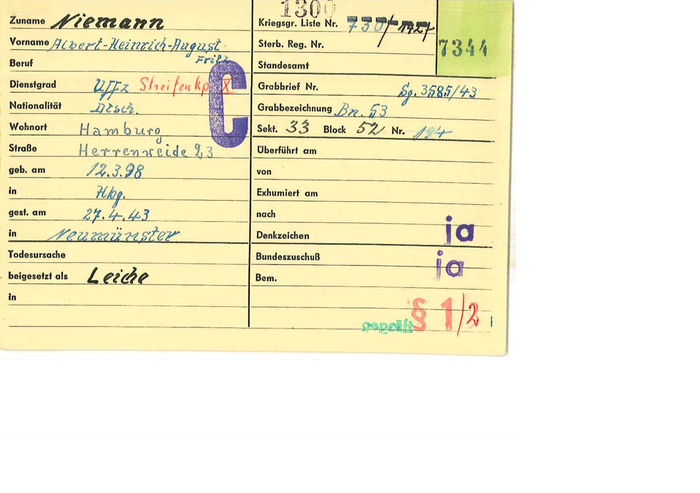 1300
Zuname Niemann
Vorname Albert-Heinrich-August
Fritz
Beruf
Dienstgrad Uffz Streifenkp. X
Nationalität Dtsch.
Wohnort Hamburg
Straße Herrenweide 23
geb. am 12.3.98
in Hbg.
gest. am 27.4.43
in Neumünster
Todesursache
beigesetzt als Leiche
in
C
Kriegsgr. Liste Nr. 730/
7344
Sterb. Reg. Nr.
Standesamt
Grabbrief Nr. Sg. 3585/43
Grabbezeichnung Bn. 53
Sekt. 33 Block 52 Nr. 194
Überführt am
von
Exhumiert am
nach
Denkzeichen ja
Bundeszuschuß ja
Bem.
geprüft § 1/2